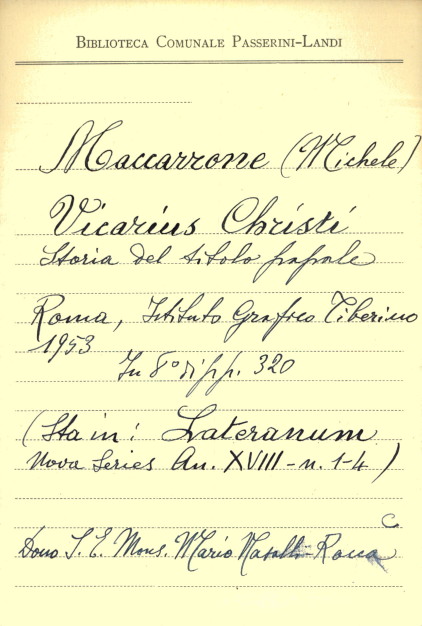 BIBLIOTECA COMUNALE PASSERINI-LANDI
Maccarrone (Michele)
Vicarius Christi
Storia del titolo papale
Roma, Istituto Grafico Tiberino
1953
In 8° di pp. 320
(Sta in: Lateranum
Nova Series An. XVIII - n. 1-4)
C
Dono S. E. Mons. Mario Nasalli-Rocca